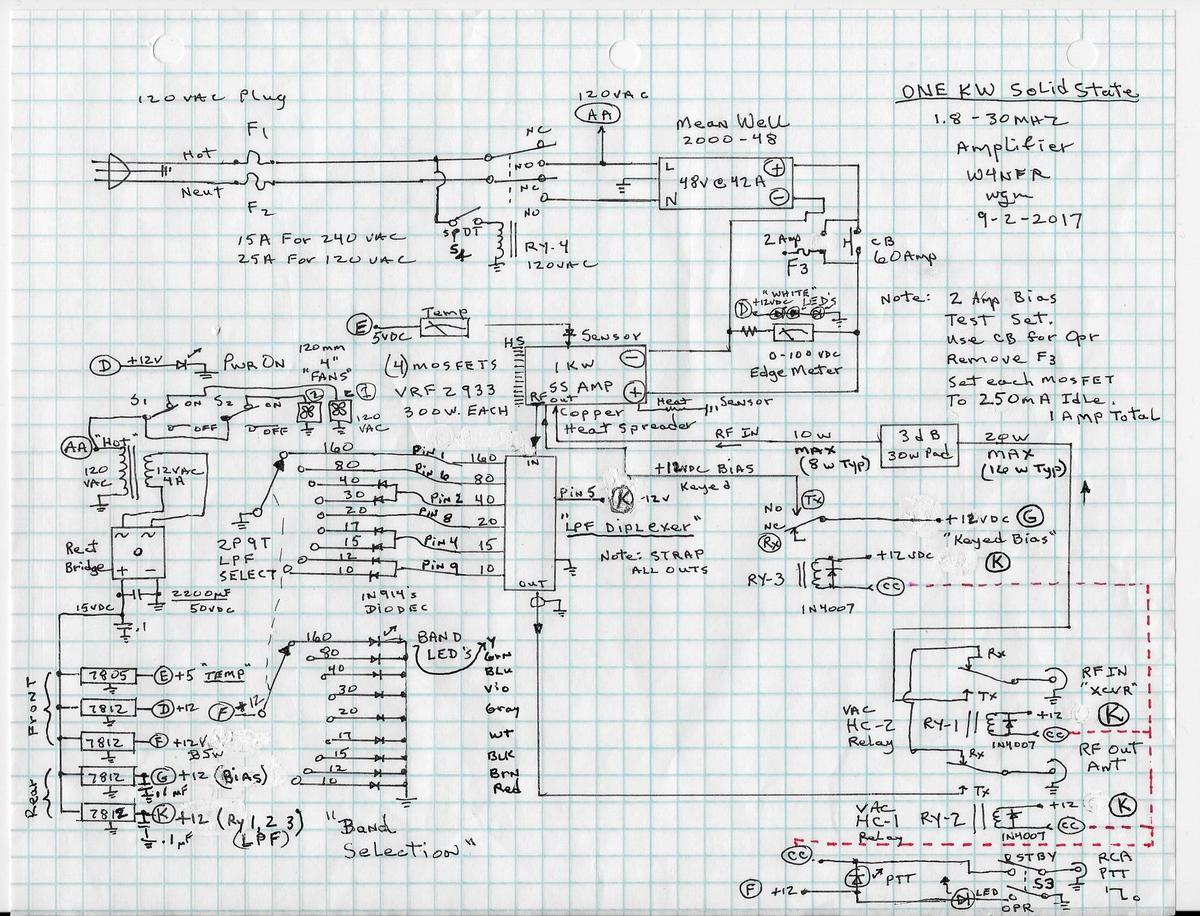 ONE KW Solid State
1.8 - 30 MHZ
Amplifier
W4NFR
wgm
9-2-2017
120 VAC Plug
F1
Hot
Neut
F2
15A For 240 VAC
25A For 120 VAC
120VAC
AA
NC
NO
NC
NO
SPDT
S4
RY-4
120VAC
Mean Well
2000-48
L
N
48V @ 42A
+
−
2 Amp
F3
CB
60Amp
"WHITE"
D +12VDC LED's
0-100 VDC
Edge Meter
Note: 2 Amp Bias
Test Set.
Use CB for Opr
Remove F3
Set each MOSFET
To 250mA Idle.
1 Amp Total
E
5VDC
Temp
Sensor
HS
1KW
SS AMP
RF out
−
+
Copper
Heat Spreader
Heat
Sensor
(4) MOSFETS
VRF 2933
300W. EACH
D +12V
PWR ON
120mm
4"
"FANS"
2
1
120
VAC
S1
ON
OFF
S2
ON
OFF
AA
"Hot"
120
VAC
12VAC
4A
Rect
Bridge
~
~
+ −
2200µF
50VDC
15VDC
.1
RF IN
10 W
MAX
(8w Typ)
3 dB
30w Pad
20W
MAX
(16 w Typ)
+12VDC BIAS
Keyed
160
80
40
30
20
17
15
12
10
Pin 1 160
Pin 6 80
Pin 2 40
Pin 8 20
Pin 4 15
Pin 9 10
2P9T
LPF
SELECT
IN914's
DIODEC
IN
OUT
Pin 5
K -12V
"LPF Diplexer"
Note: STRAP
ALL OUTS
NO
NC
Tx
Rx
+12VDC G
"Keyed Bias"
K
RY-3
+12VDC
CC
1N4007
160
80
40
30
20
17
15
12
10
BAND
LED's
Y
Grn
Blu
Vio
Gray
Wt
BLK
BRN
Red
F +12
"Band
Selection"
Front
7805 E +5 "TEMP"
7812 D +12
7812 F +12V
BSW
Rear
7812 G +12 (BIAS)
.1µF
7812 K +12 (Ry 1, 2 3)
(LPF)
.1µF
Rx
Tx
RF IN
"XCVR"
K
VAC
HC-2
Relay
RY-1
+12
CC
1N4007
Rx
Tx
RF OUT
ANT
VAC
HC-1
Relay
RY-2
+12
CC
1N4007
K
CC
PTT
F +12
LED
STBY
S3
OPR
RCA
PTT